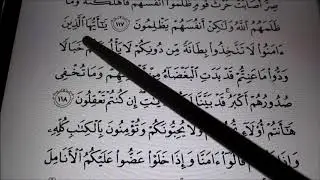 صِرٌّ أَصَابَتْ حَرْثَ قَوْمٍ ظَلَمُوٓا۟ أَنفُسَهُمْ فَأَهْلَكَتْهُ وَمَا
ظَلَمَهُمُ ٱللَّهُ وَلَٰكِنْ أَنفُسَهُمْ يَظْلِمُونَ ١١٧ يَٰٓأَيُّهَا ٱلَّذِينَ
ءَامَنُوا۟ لَا تَتَّخِذُوا۟ بِطَانَةً مِّن دُونِكُمْ لَا يَأْلُونَكُمْ خَبَالًا
وَدُّوا۟ مَا عَنِتُّمْ قَدْ بَدَتِ ٱلْبَغْضَآءُ مِنْ أَفْوَٰهِهِمْ وَمَا تُخْفِى
صُدُورُهُمْ أَكْبَرُ قَدْ بَيَّنَّا ٱلْءَايَٰتِ إِن كُنتُمْ تَعْقِلُونَ ١١٨
هَٰٓأَنتُمْ أُو۟لَآءِ تُحِبُّونَهُمْ وَلَا يُحِبُّونَكُمْ وَتُؤْمِنُونَ بِٱلْكِتَٰبِ كُلِّهِۦ
وَإِذَا لَقُوكُمْ قَالُوٓا۟ ءَامَنَّا وَإِذَا خَلَوْا۟ عَضُّوا۟ عَلَيْكُمُ ٱلْأَنَامِلَ